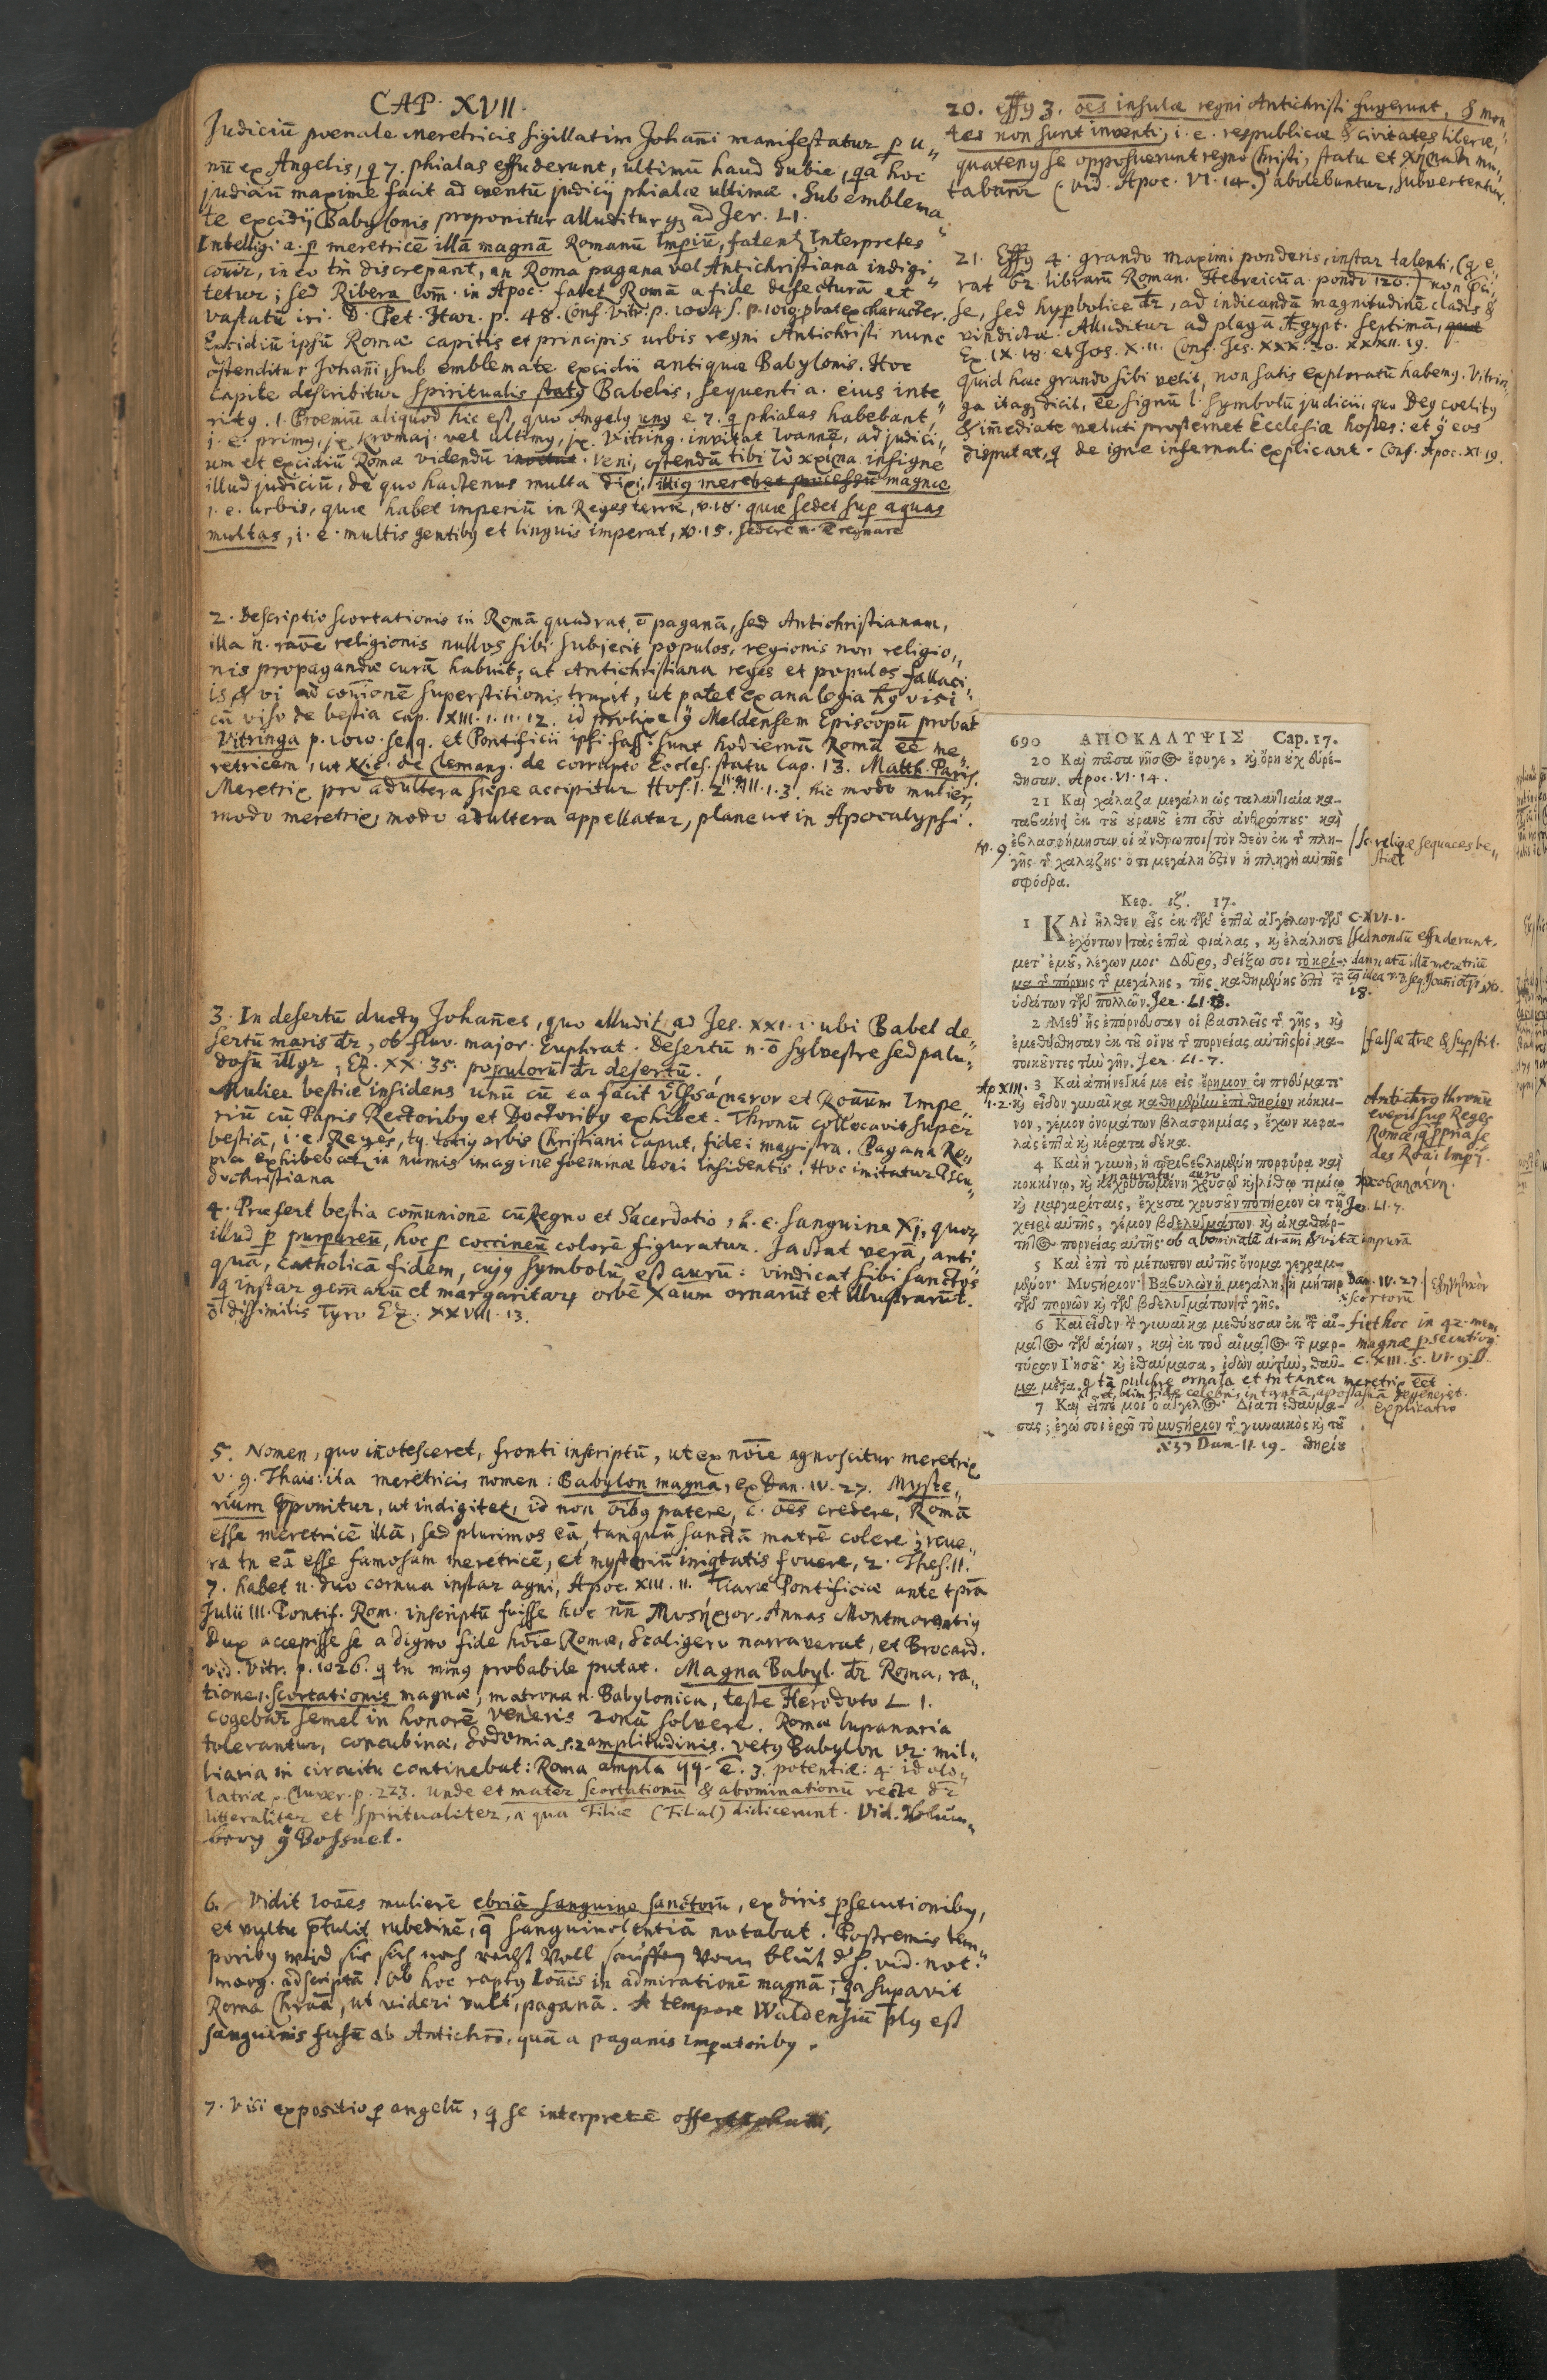 CAP. XVII.
Judiciū poenale meretricis sigillatim Johañi manifestatur ꝑ u„
nū ex Angelis, q̄ 7. phialas effuderunt, ultimū haud dubie, qa hoc
judiciū maxime facit ad eventū judicij phialæ ultimæ. Sub emblema„
te excidij Babylonis proponitur alluditur qꝫ ad Jer. LI.
Intelligi a. ꝑ meretricē illā magnā Romanū Impiū, fatent Interpretes
in eo tm̄ discrepant, an Roma pagana vel Antichristiana indigi„
tetur; sed Ribera Com̄. in Apoc. fatet Romā a fide defecturā et
vastatū iri. D. Pet. Itar. p. 48. Conf. Vitr. p. 1004. s. p. 1019. probat ex character.
Excidiū ipsū Romæ capitis et principis urbis regni Antichristi nunc
ostenditur Johañi, sub emblemate excidii antiquæ Babylonis. Hoc
Capite describitur spiritualis staty Babelis, sequenti a. eius inte„
rity. 1. Proemiū aliquod hic est, quo Angely uny e 7. q phialas habebant,
i. e. primy, jx. Kromaj. vel ultimy, jx. Vitring. invitat Ioannē, ad judici„
um et excidiū Romæ videndū. Veni, ostendā tibi τὸ κρίμα insigne
illud judiciū, de quo hactenus multa dixi, illig meret magnæ
i. e. urbis, quæ habet imperiū in Reges terræ, v. 18. quæ sedet sup aquas
multas, i. e. multis gentiby et linguis imperat, v. 15. sedere n. ē regnare
2. Descriptio scortationis in Romā quadrat, ō paganā, sed Antichristianam,
illa n. raōe religionis nullos sibi subjecit populos, regionis non religio„
nis propagandæ curā habuit; at Antichristiana reges et populos fallaci„
is & vi ad superstitionis traxit, ut patet ex analogia visi
cū viso de bestia cap. XIII. 1. 11. 12. id prolixe Meldensem Episcopū probat
Vitringa p. 1010. seqq. et Pontificii ipsi fass. sunt hodiernū Romā ēē me„
retricem, ut Nic. de Clemang. de corrupto Eccles. statu Cap. 13. Matth. Paris.
Meretrix pro adultera sæpe accipitur Hos. I. 2. III. 1. 3. hic modo mulier,
modo meretrix, modo adultera appellatur, plane ut in Apocalypsi.
3. In desertū ducty Johañes, quo alludit ad Jes. XXI. 1. ubi Babel de„
sertū maris dr̄, ob fluv. major. Euphrat. Desertū n. ō sylvestre sed palu„
dosū illgr, Ez. XX. 35. populorū dr̄ desertū.
Mulier bestiæ insidens unū cū ea facit et Roāum Impe„
riū cū Papis Rectoriby et Doctoriby exhibet. Thronū collocavit super
bestiā, i. e. Reges, tq. totiy orbis Christiani caput, fidei magistra. Pagana Ro„
ma exhibebat in numis imagine foeminæ leoni insidentis. Hoc imitatur Pseu„
dochristiana
4. Præfert bestia com̄unionē cū Regno et Sacerdotio, h. e. sanguine Xj, quoꝝ
illud ꝑ purpureū, hoc ꝑ coccineū colorē figuratur. Jactat verā, anti„
quā, Catholicā fidem, cujy symbolū est aurū: vindicat sibi sanctos
q instar gem̄arū et margaritarꝝ orbē Xāum ornarūt et illustrarūt.
ō dissimilis Tyro Ez. XXVIII. 13.
5. Nomen, quo iñotesceret, fronti inscriptū, ut ex nōie agnoscitur meretrix
v. g. Thais: ita meretricis nomen: Babylon magna, ex Dan. IV. 27. Myste„
rium p̄ponitur, ut indigitet, id non ōiby patere, c. ōes credere, Romā
esse meretricē illā, sed plurimos eā, tanquā sanctā matrē colere; reve„
ra tn eā esse famosam meretricē, et mysteriū iniqtatis fovere, 2. Thes. II.
7. habet n. duo cornua instar agni, Apoc. XIII. 11. Tiaræ Pontificiæ ante tprā
Julii III. Pontif. Rom. inscriptū fuisse hoc nn̄ Μυςήριον. Annas Montmorentiy
Dux accepisse se a digno fide hōie Romæ, Scaligero narraverat, et Brocard.
vid. Vitr. p. 1026. q tn miny probabile putat. Magna Babyl. dr̄ Roma, ra„
tione 1. scortationis magnæ, matrona n. Babylonica, teste Herodoto L 1.
cogebat̄ semel in honorē Veneris zonā solvere. Romæ lupanaria
tolerantur, concubinæ, Sodomia s. 2 amplitudinis. vety Babylon vz. mil„
liaria in circuitu continebat: Roma ampla qq. ē. 3. potentiæ: 4. idolo„
latriæ v. Cluver. p. 223. unde et mater scortationū & abominationū recte dr̄
litteraliter et spiritualiter, a qua Filiæ (Filial) didicerunt. Vid.
Bossuet.
6. Vidit Ioāes mulierē ebriā sanguine sanctorū, ex diris psecutioniby,
et vultu p̄tulit rubedinē, q̄ sanguinolentiā notabat. Postremis tem„
poriby wird sie sich noch recht voll sauffen vom blut d. h. vid. not.
marg. adscriptā. Ob hoc rapty Ioāes in admirationē magnā, qa supavit
Roma Chrāā, ut videri vult, paganā. A tempore Waldensiū ply est
sanguinis fusū ab Antichrō, quā a paganis Impatoriby.
7. Visi expositio ꝑ angelū, q se interpretē
20. Effy 3. ōēs insulæ regni Antichristi fugerunt, & mon„
tes non sunt inventi, i. e. respublicæ & civitates liberæ,
quateny se opposuerunt regno Christi, statu et χήματι mu„
tabunt̄ (vid. Apoc. VI. 14.) abolebuntur, subvertentur.
21. Effy 4. grando maximi ponderis, instar talenti, (q e„
rat librarū Roman. Hebraicū a. pondo 120.) non
se, sed hypbolice dr̄, ad indicandū magnitudinē cladis &
vindictæ. Alluditur ad plagā Ægypt. septimā,
Ex. IX. 18. et Jos. X. 11. Conf. Jes. XXX. 30. XXXII. 19.
Quid hæc grando sibi velit, non satis exploratū habemy. Vitrin„
ga itaqꝫ dicit, ēē signū l. symbolū judicii, quo Dey coelity
& im̄ediate veluti prosternet Ecclesiæ hostes: et eos
disputat, q de igne infernali explicant. Conf. Apoc. XI. 19.
690 ΑΠΟΚΑΛΥΨΙΣ Cap. 17.
20 Καὶ πᾶσα νῆσ⊚ ἔφυγε, κỳ ὄρη ȣχ εὑρέ-
θησαν. Apoc. VI. 14.
21 Καὶ χάλαζα μεγάλη ὡς ταλαντιαία κα-
ταβαίνει ἐκ τοῦ ȣρανοῦ ἐπὶ τοὺς ἀνθρώπους· καὶ
v. 9. ἐβλασφήμησαν οἱ ἄνθρωποι τὸν θεὸν ἐκ τ πλη- sc. reliqæ sequaces be„
γῆς τ χαλάζης· ὅτι μεγάλη ἐςὶν ἡ πληγὴ αὐτῆς stiæ
σφόδρα.
Κεφ. ιζ´. 17.
1 ΚΑὶ ἦλθεν εἷς ἐκ τῶν ἑπτὰ ἀγγέλων τῶν C. XVI. 1.
ἐχόντων τὰς ἑπτὰ φιάλας, κỳ ἐλάλησε sed nondū effuderunt.
μετ᾽ ἐμοῦ, λέγων μοι· Δεῦρο, δείξω σοι τὸ κρί- damnatā illā meretricē
μα τ πόρνης τ μεγάλης, τῆς καθημένης ἐπὶ τ
ὑδάτων τῶν πολλῶν. Jer. LI. 13. 18.
2 Μεθ᾽ ἧς ἐπόρνευσαν οἱ βασιλεῖς τ γῆς, κỳ
ἐμεθύσθησαν ἐκ τοῦ οἴνȣ τ πορνείας αὐτῆς οἱ κα- falsæ dr̄æ & supstit.
τοικοῦντες τὴν γῆν. Jer. LI. 7.
Ap XIII. 3 Καὶ ἀπήνεγκέ με εἰς ἔρημον ἐν πνεύματι·
1. 2. κỳ εἶδον γυναῖκα καθημένην ἐπὶ θηρίον κόκκι- Antichry thronū
νον, γέμον ὀνομάτων βλασφημίας, ἔχων κεφα- evexit sup Reges
λὰς ἑπτὰ κỳ κέρατα δέκα. Romæ, q̄ ppria se
des Roāi Impij.
4 Καὶ ἡ γυνὴ, ἡ περιβεβλημένη πορφύρᾳ καὶ
inaurata auro
κοκκίνῳ, κỳ κεχρυσωμένη χρυσῷ κỳ λίθῳ τιμίῳ
κỳ μαργαρίταις, ἔχουσα χρυσοῦν ποτήριον ἐν τῇ Jer. LI. 7.
χειρὶ αὐτῆς, γέμον βδελυγμάτων κỳ ἀκαθάρ-
τητ⊚ πορνείας αὐτῆς· ob abominatā dram & vitā impurā
5 Καὶ ἐπὶ τὸ μέτωπον αὐτῆς ὄνομα γεγραμ-
μένον· Μυςήριον· Βαβυλὼν ἡ μεγάλη, ἡ μήτηρ Dan. IV. 27.
τῶν πορνῶν κỳ τῶν βδελυγμάτων τ γῆς. scortorū
6 Καὶ εἶδον τ γυναῖκα μεθύουσαν ἐκ τ αἵ- fiet hoc in 42. mens
ματ⊚ τῶν ἁγίων, καὶ ἐκ τοῦ αἵματ⊚ τ μαρ- magnæ psecution.
τύρων Ἰησοῦ· κỳ ἐθαύμασα, ἰδὼν αὐτὴν, θαῦ- C. XIII. 5. VI. 9.
μα μέγα. q tā pulchre ornata et tn tanta meretrix ēēt
et olim fide celebris in tantā apostasiā degeneret.
7 Καὶ εἶπέ μοι ὁ ἄγγελ⊚· Διατί ἐθαύμα- Explicatio
σας; ἐγώ σοι ἐρῶ τὸ μυςήριον τ γυναικὸς κỳ τοῦ
Dan. II. 19. θηρίȣ